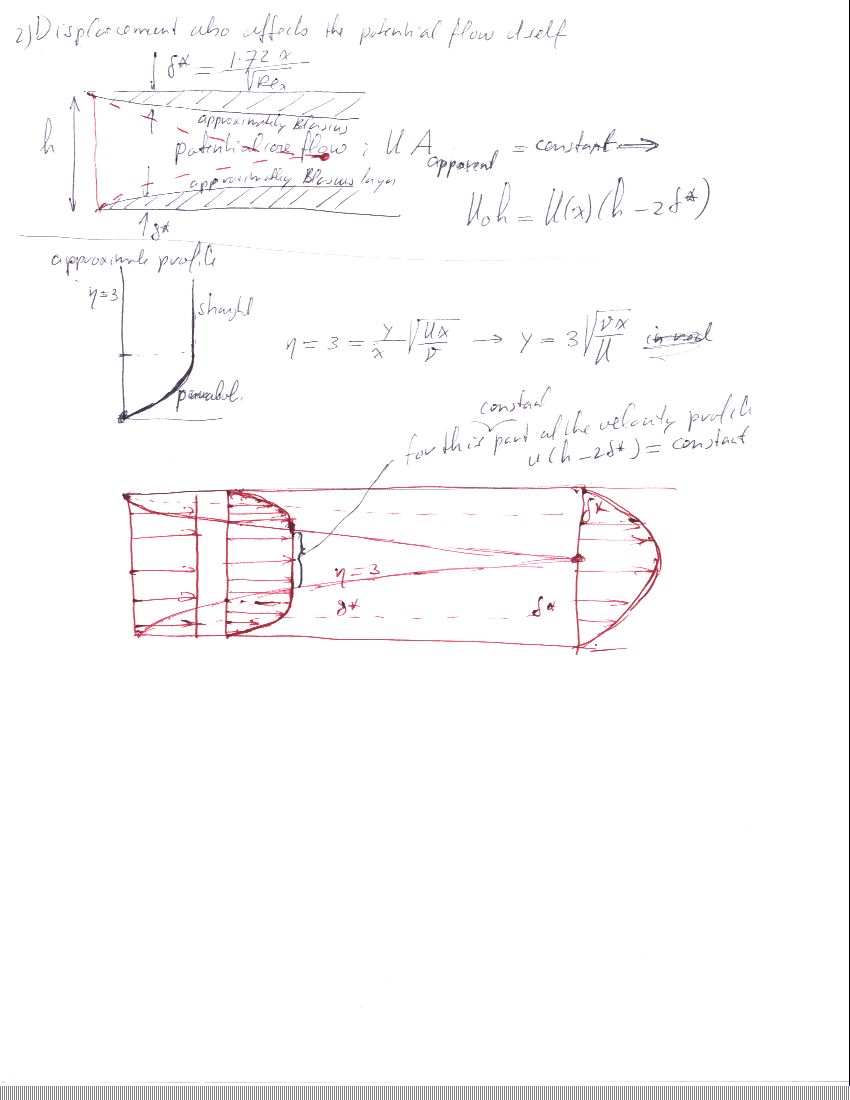 2) Displacement also affects the potential flow itself
δ* = 1.72 x / √Re_x
approximately Blasius
h
potential core flow : U A_apparent = constant →
approximately Blasius layer
U₀h = U(x)(h − 2δ*)
δ*
approximate profile
η=3
straight
η = 3 = y/x √(Ux/ν) → y = 3 √(νx/U)
constant
for this part of the velocity profile
u(h − 2δ*) = constant
δ*
η = 3
δ*
δ*